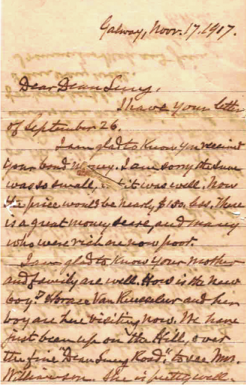 Galway, Novr. 17, 1907.
Dear Dean
I have your letter
of September 26.
I am glad to know you received
your bond money. I am sorry the sum
was so small, it was well. Now
the price would be nearly less. There
is a great money scare, and many
who were rich are now poor.
I am glad to know your mother
and family are well. How is the new
boy? Horace Van and her
boy are here visiting now. We have
just been up on the Hill, over
the fine Road, to see Mrs.
Williamson. She is pretty well.